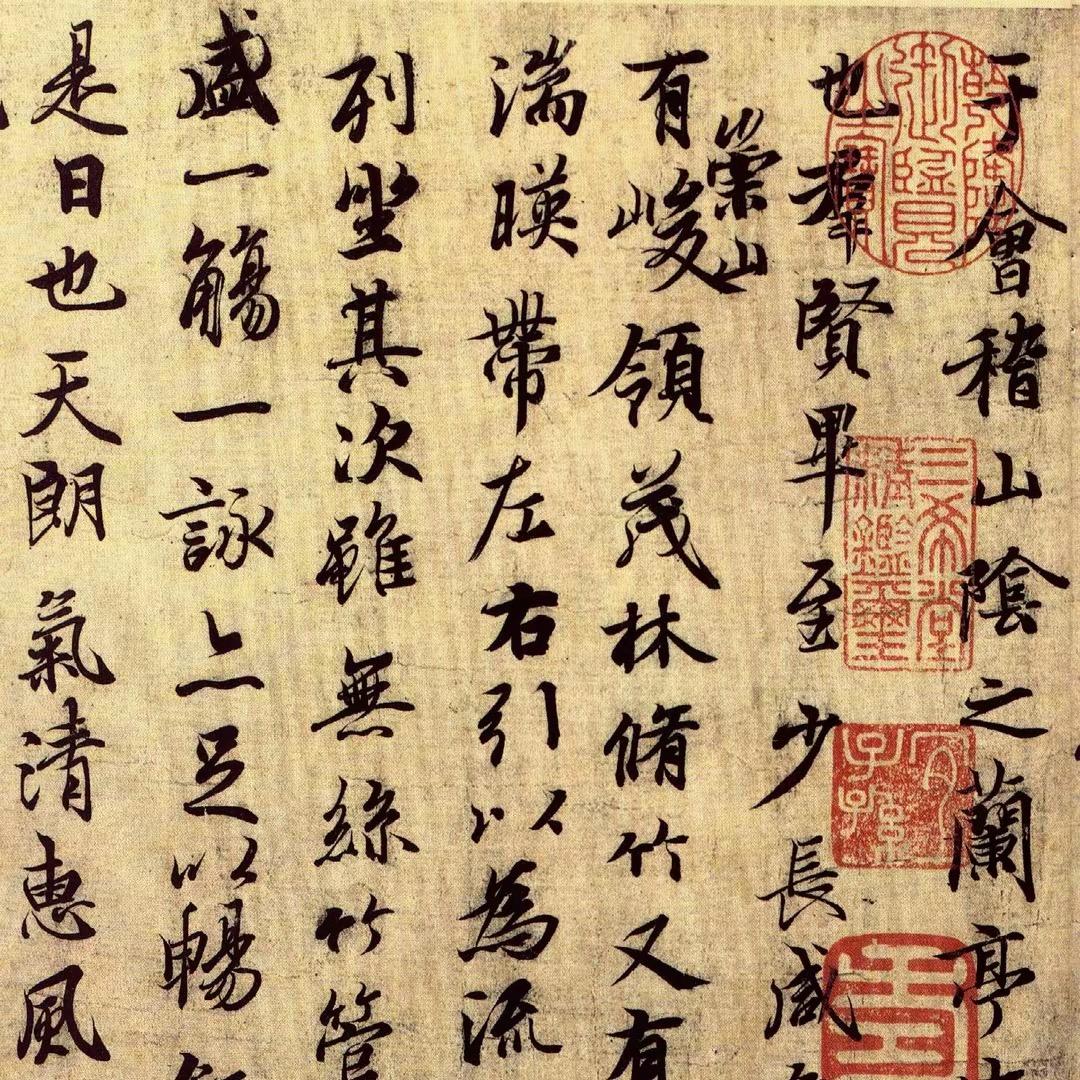 于會稽山陰之蘭亭
也羣賢畢至少長咸
崇山
有峻領茂林脩竹又有
湍暎帶左右引以為流
列坐其次雖無絲竹管
盛一觴一詠亦足以暢
是日也天朗氣清惠風
三希堂精鑑璽
宜子孫